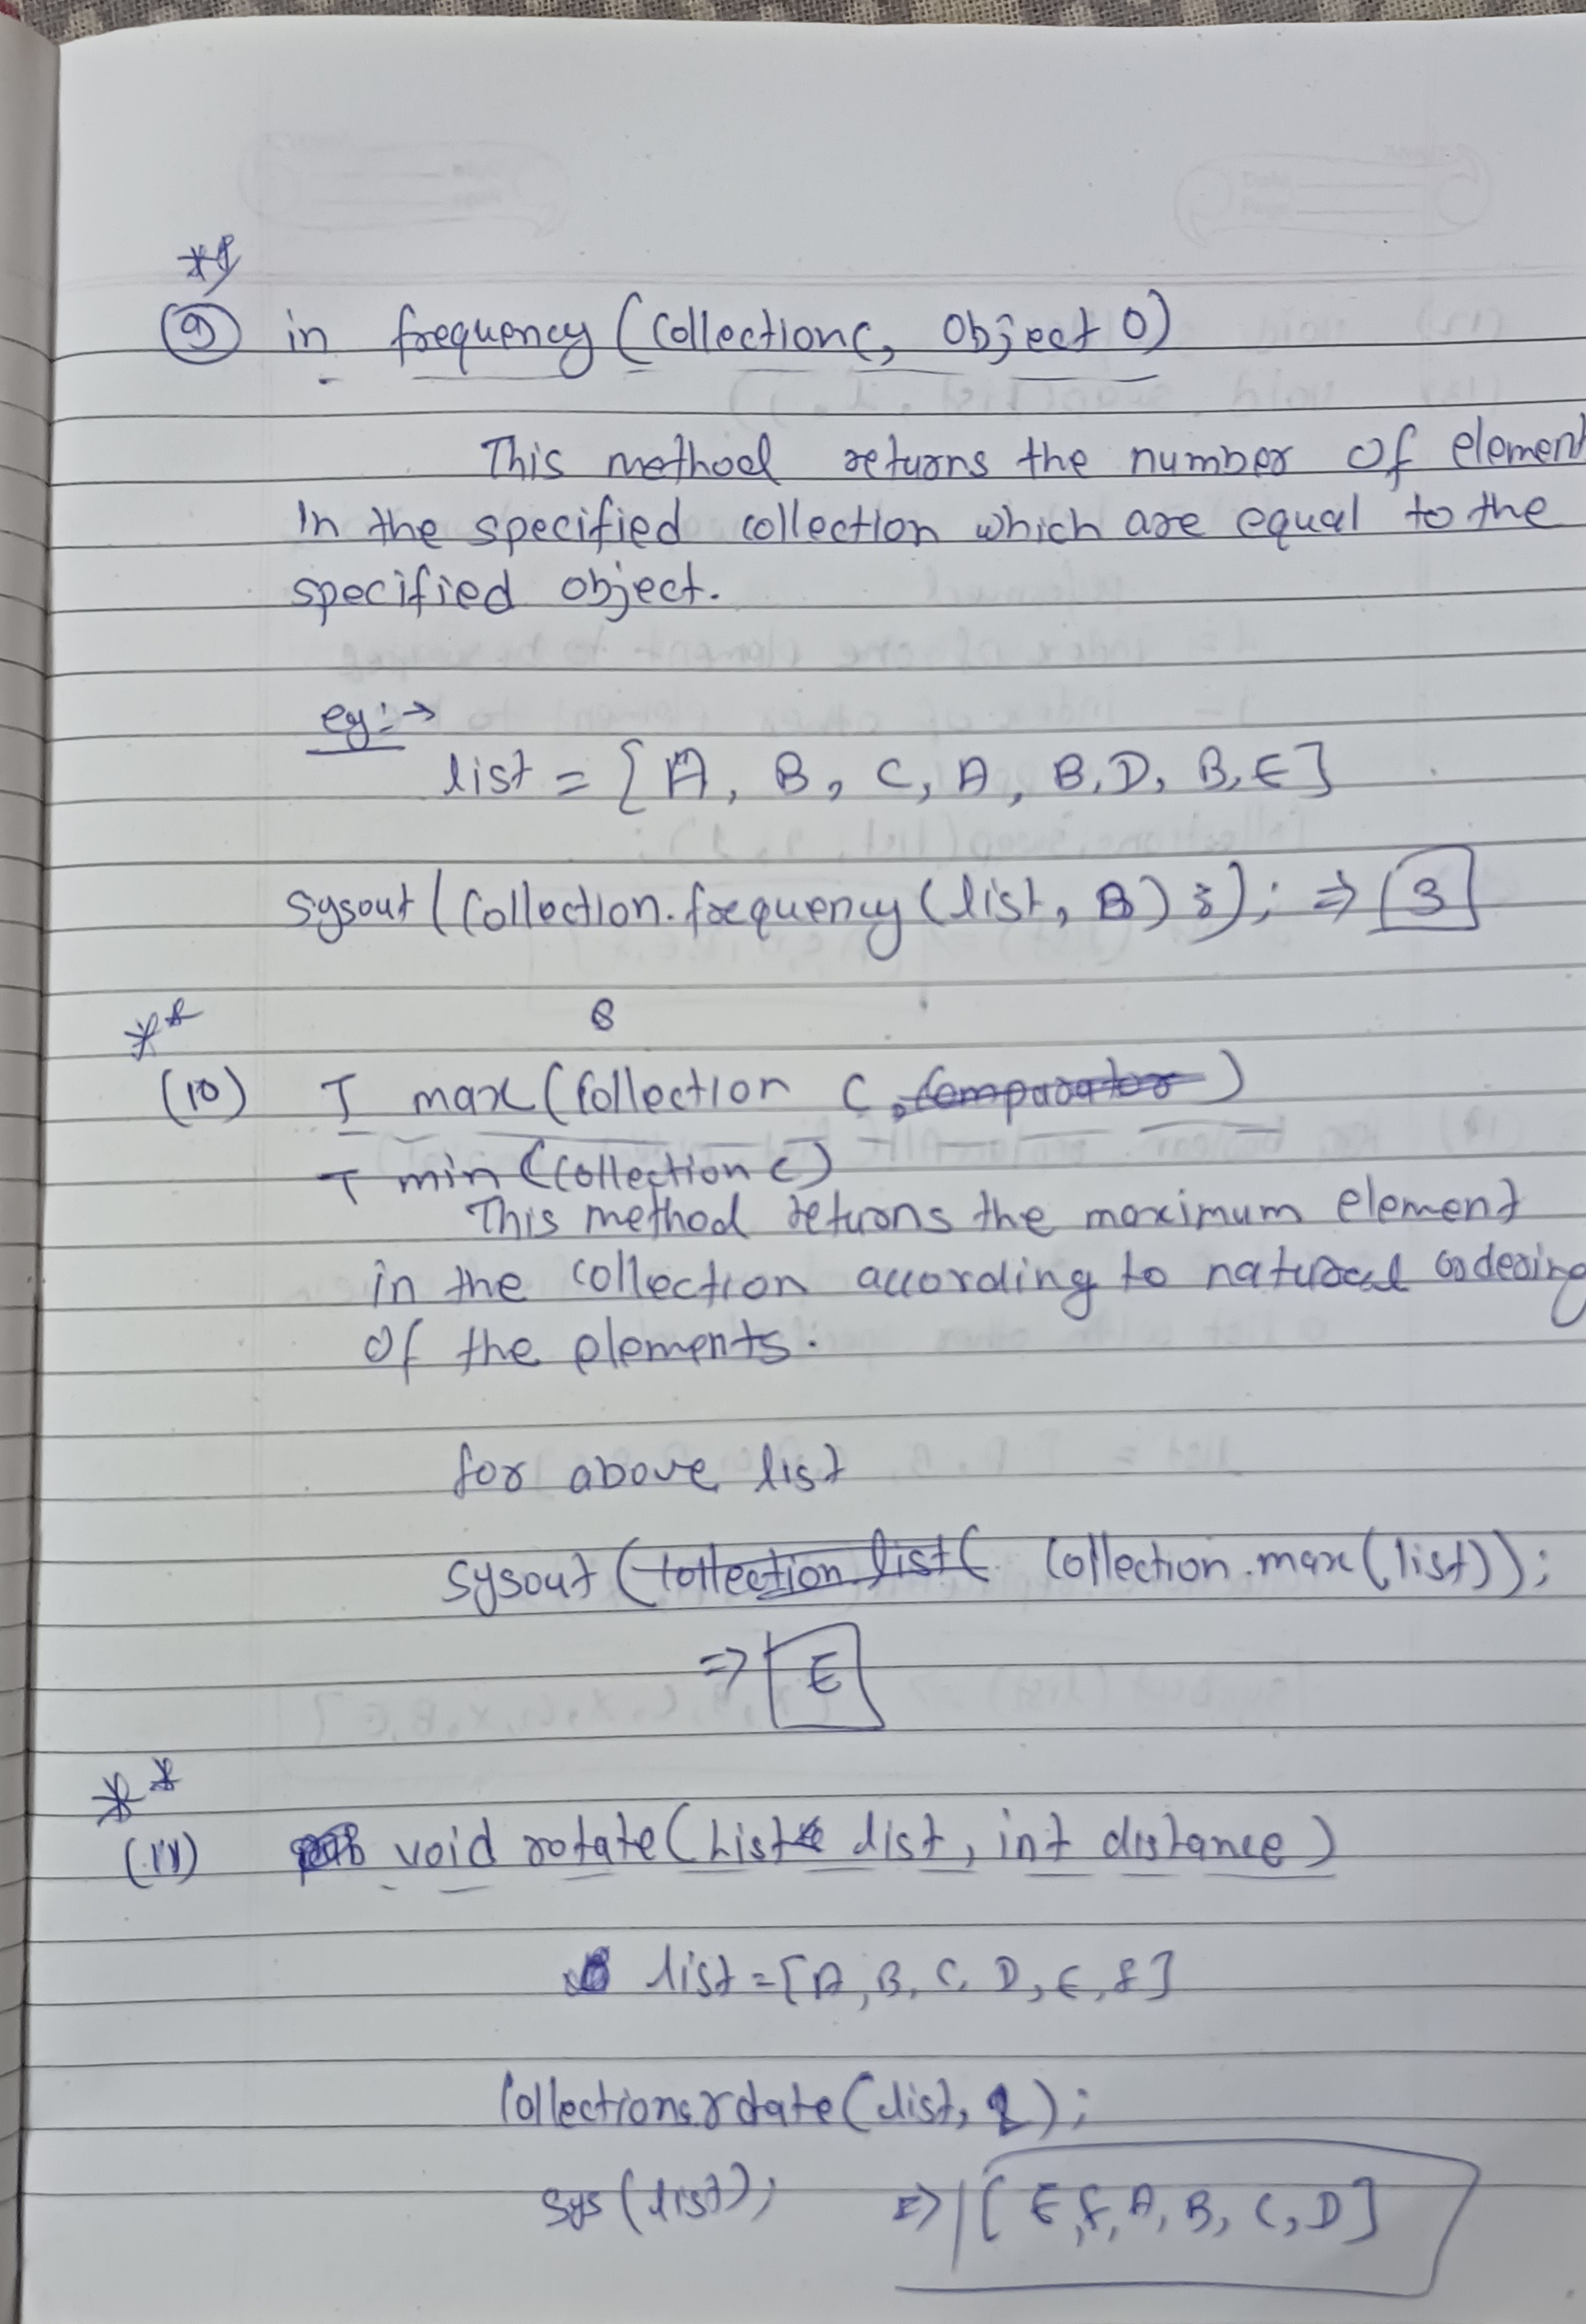 (9) in frequency (Collection c, Object O)
This method returns the number of element
In the specified collection which are equal to the
specified object.
eg:→
list = [A, B, C, A, B, D, B, E]
Sysout (Collection.frequency (list, B) ;); ⇒ 3
**
(10) T max (Collection C, Comparator)
T min (Collection c)
This method returns the maximum element
in the collection according to natural ordering
of the elements.
for above list
Sysout (Collection.list( Collection.max(list));
⇒ E
**
(11) void rotate (List list, int distance)
list = [A, B, C, D, E, f]
Collections.rotate (list, 2);
Sys (list); ⇒ [E, f, A, B, C, D]